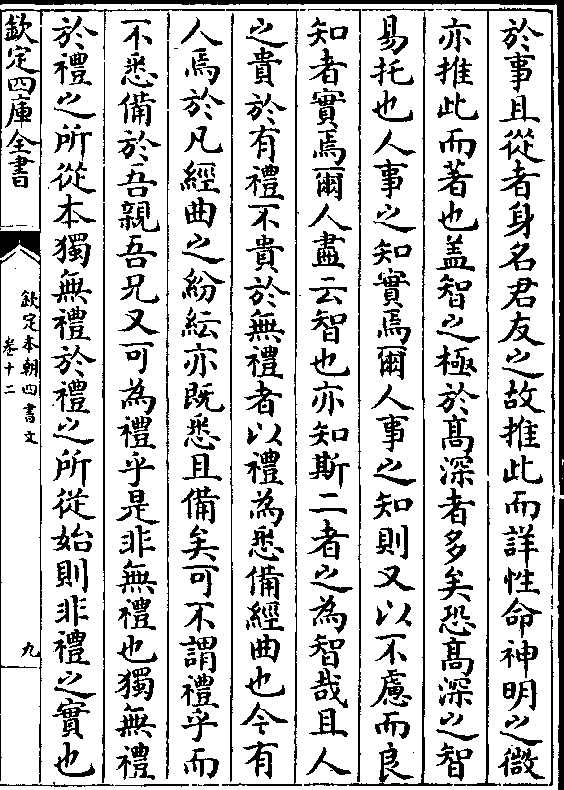 於事且從者身名君友之故推此而詳性命神明之微
亦推此而著也盖智之極於髙深者多矣恐髙深之智
易托也人事之知實焉爾人事之知則又以不慮而良
知者實焉爾人盡云智也亦知斯二者之為智哉且人
之貴於有禮不貴於無禮者以禮為悉備經曲也今有
人焉於凡經曲之紛紜亦既悉且備矣可不謂禮乎而
不悉備於吾親吾兄又可為禮乎是非無禮也獨無禮
於禮之所從本獨無禮於禮之所從始則非禮之實也
欽定四庫全書
欽定本朝四書文
卷十二
九